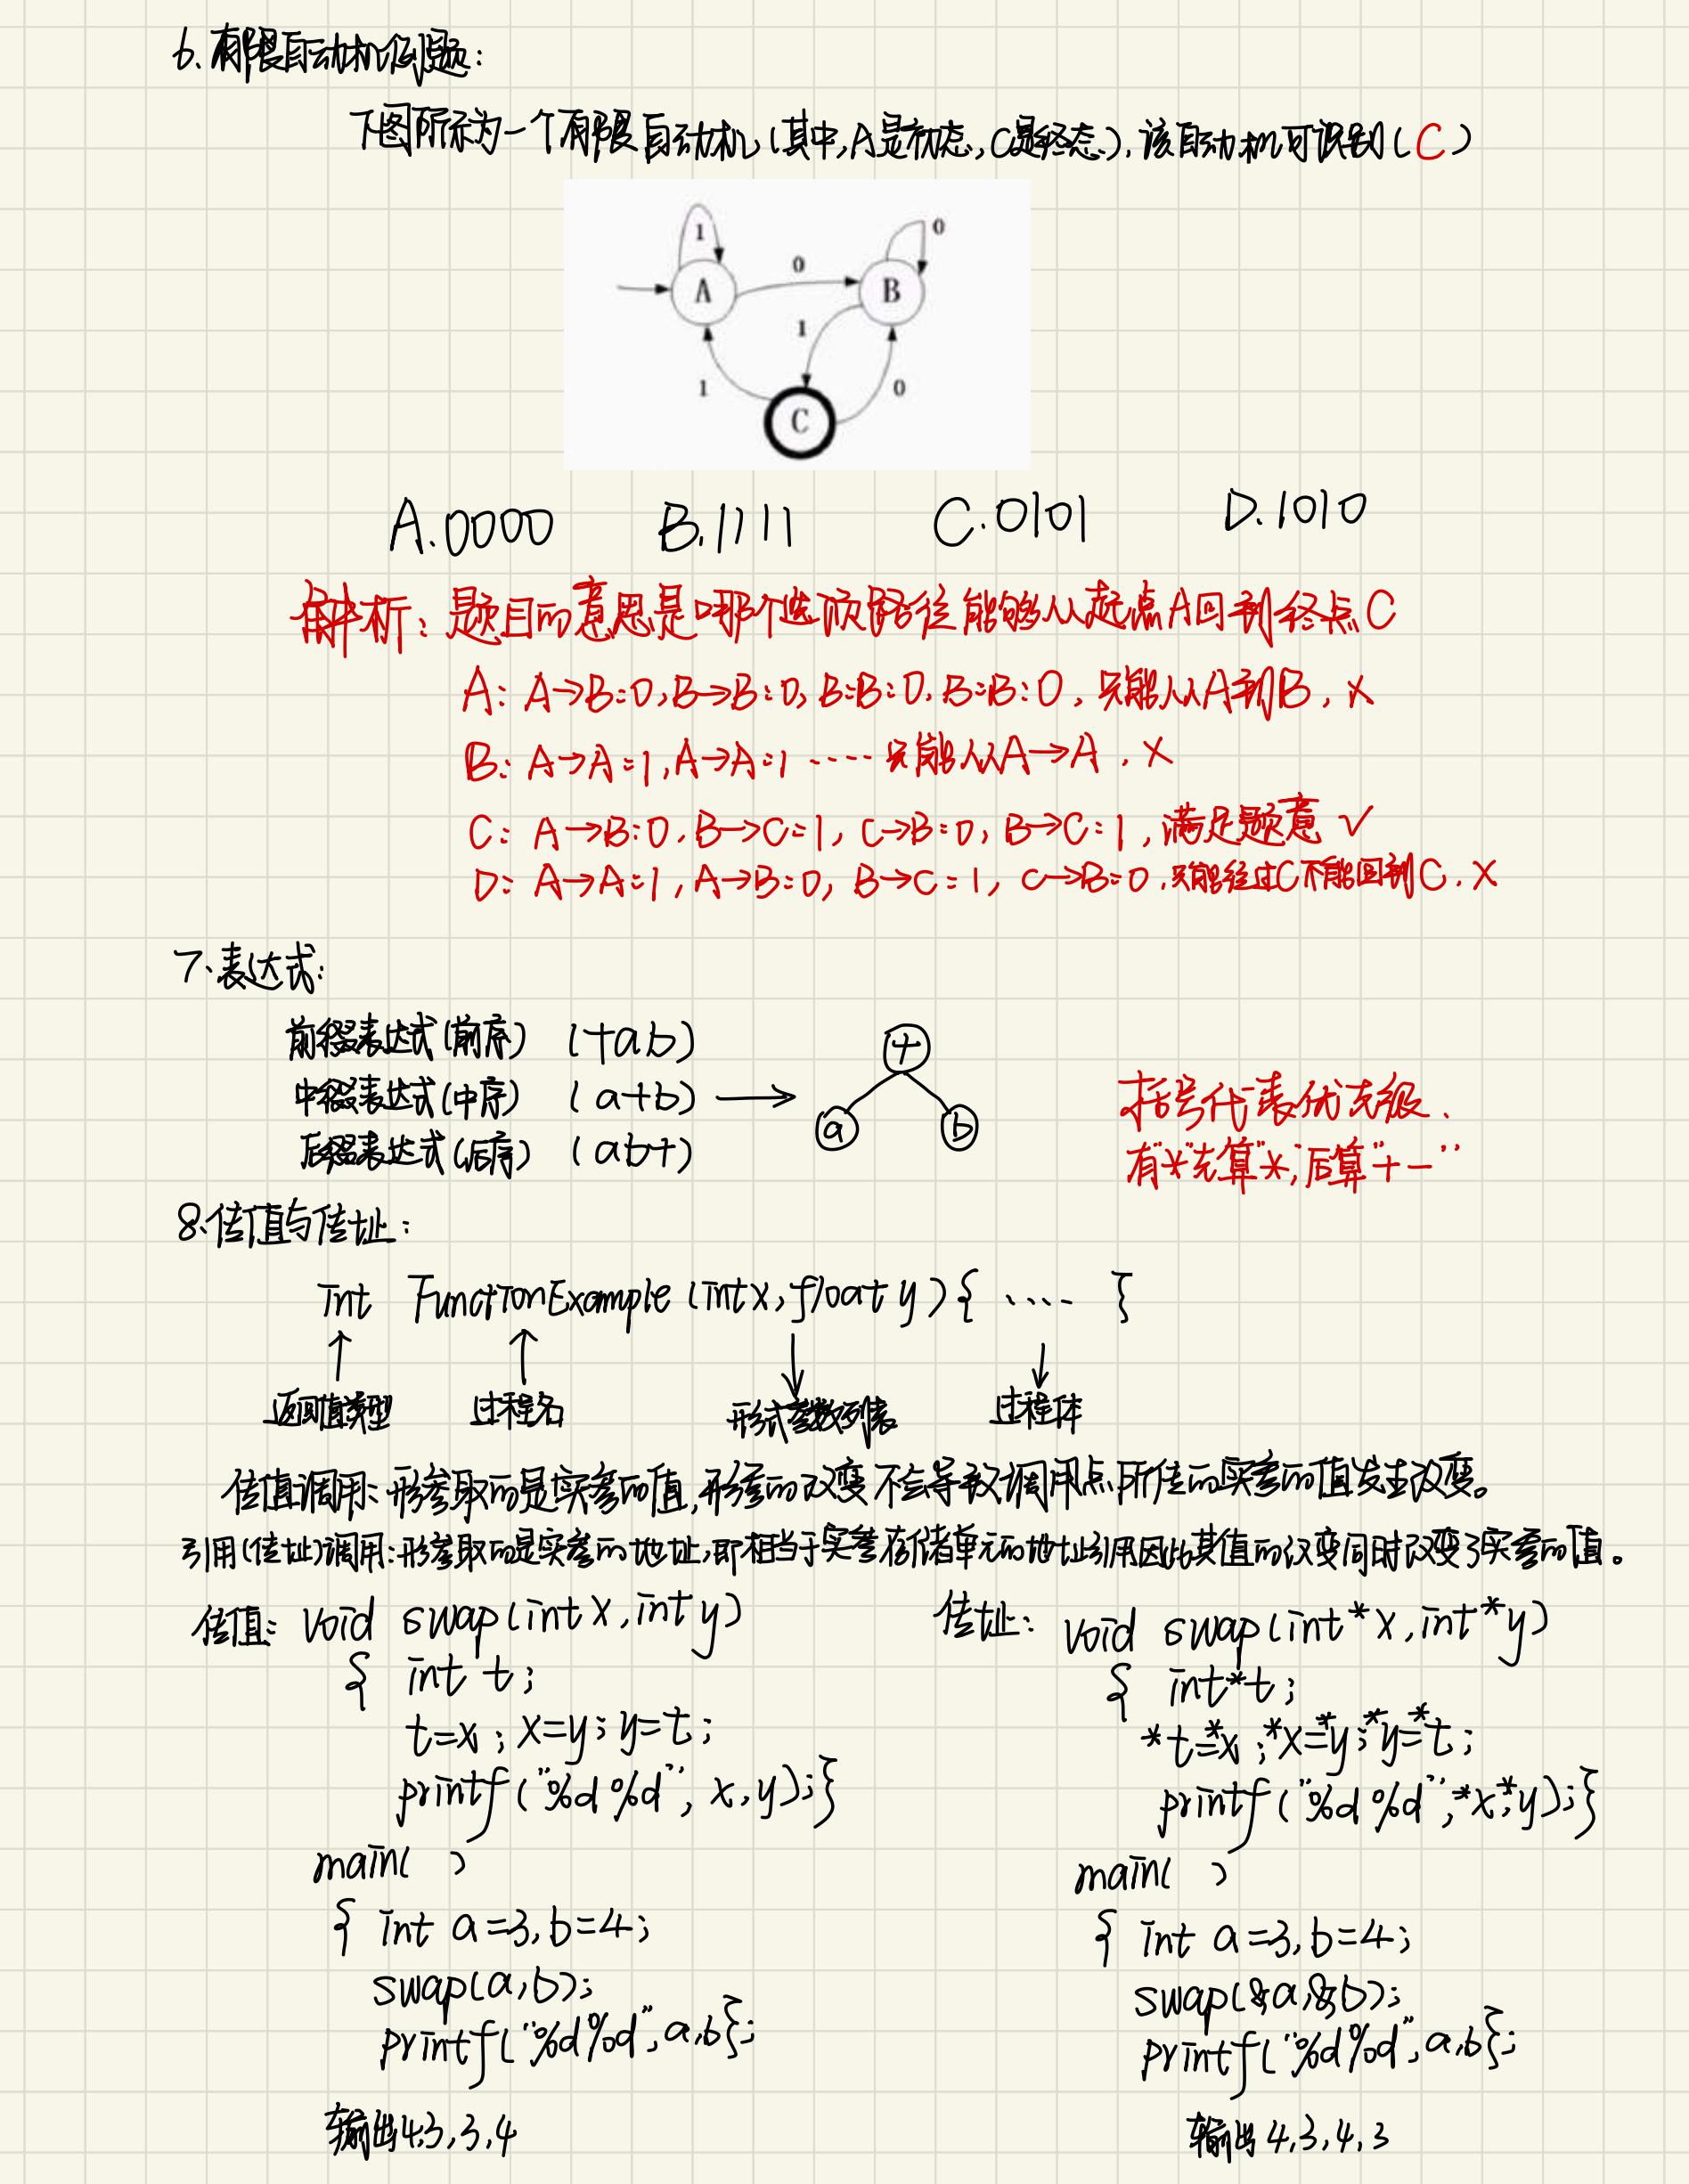 6、有限自动机例题：
下图所示为一个有限自动机（其中，A是初态，C是终态），该自动机可识别（C）
1
0
0
A
B
1
1
0
C
A.0000 B.1111 C.0101 D.1010
解析：题目的意思是哪个选项路径能够从起点A回到终点C
A：A→B:0，B→B:0，B:B:0，B:B:0，只能从A到B，×
B：A→A:1，A→A:1 ····· 只能从A→A，×
C：A→B:0，B→C=1，C→B=0，B→C=1，满足题意 √
D：A→A=1，A→B=0，B→C=1，C→B=0，只能经过C不能回到C，×
7、表达式：
前缀表达式（前序） （+ab）
中缀表达式（中序） （a+b） →
后缀表达式（后序） （ab+）
+
a b
括号代表优先级，
有"*"先算"*"，后算"+－"
8、传值与传址：
int FunctionExample（int x，float y）{ ···· }
返回值类型 过程名 形式参数列表 过程体
传值调用：形参取的是实参的值，形参的改变不会导致调用点所传的实参的值发生改变。
引用（传址）调用：形参取的是实参的地址，即相当于实参存储单元的地址引用因此其值的改变同时改变了实参的值。
传值： void swap(int x, int y)
{ int t;
t=x; x=y; y=t;
printf("%d %d", x, y);}
main( )
{ int a=3, b=4;
swap(a,b);
printf("%d%d", a,b};
输出4,3,3,4
传址： void swap(int *x, int *y)
{ int*t;
*t=*x; *x=*y; *y=*t;
printf("%d %d", *x, *y);}
main( )
{ int a=3, b=4;
swap(&a,&b);
printf("%d%d", a,b};
输出4,3,4,3